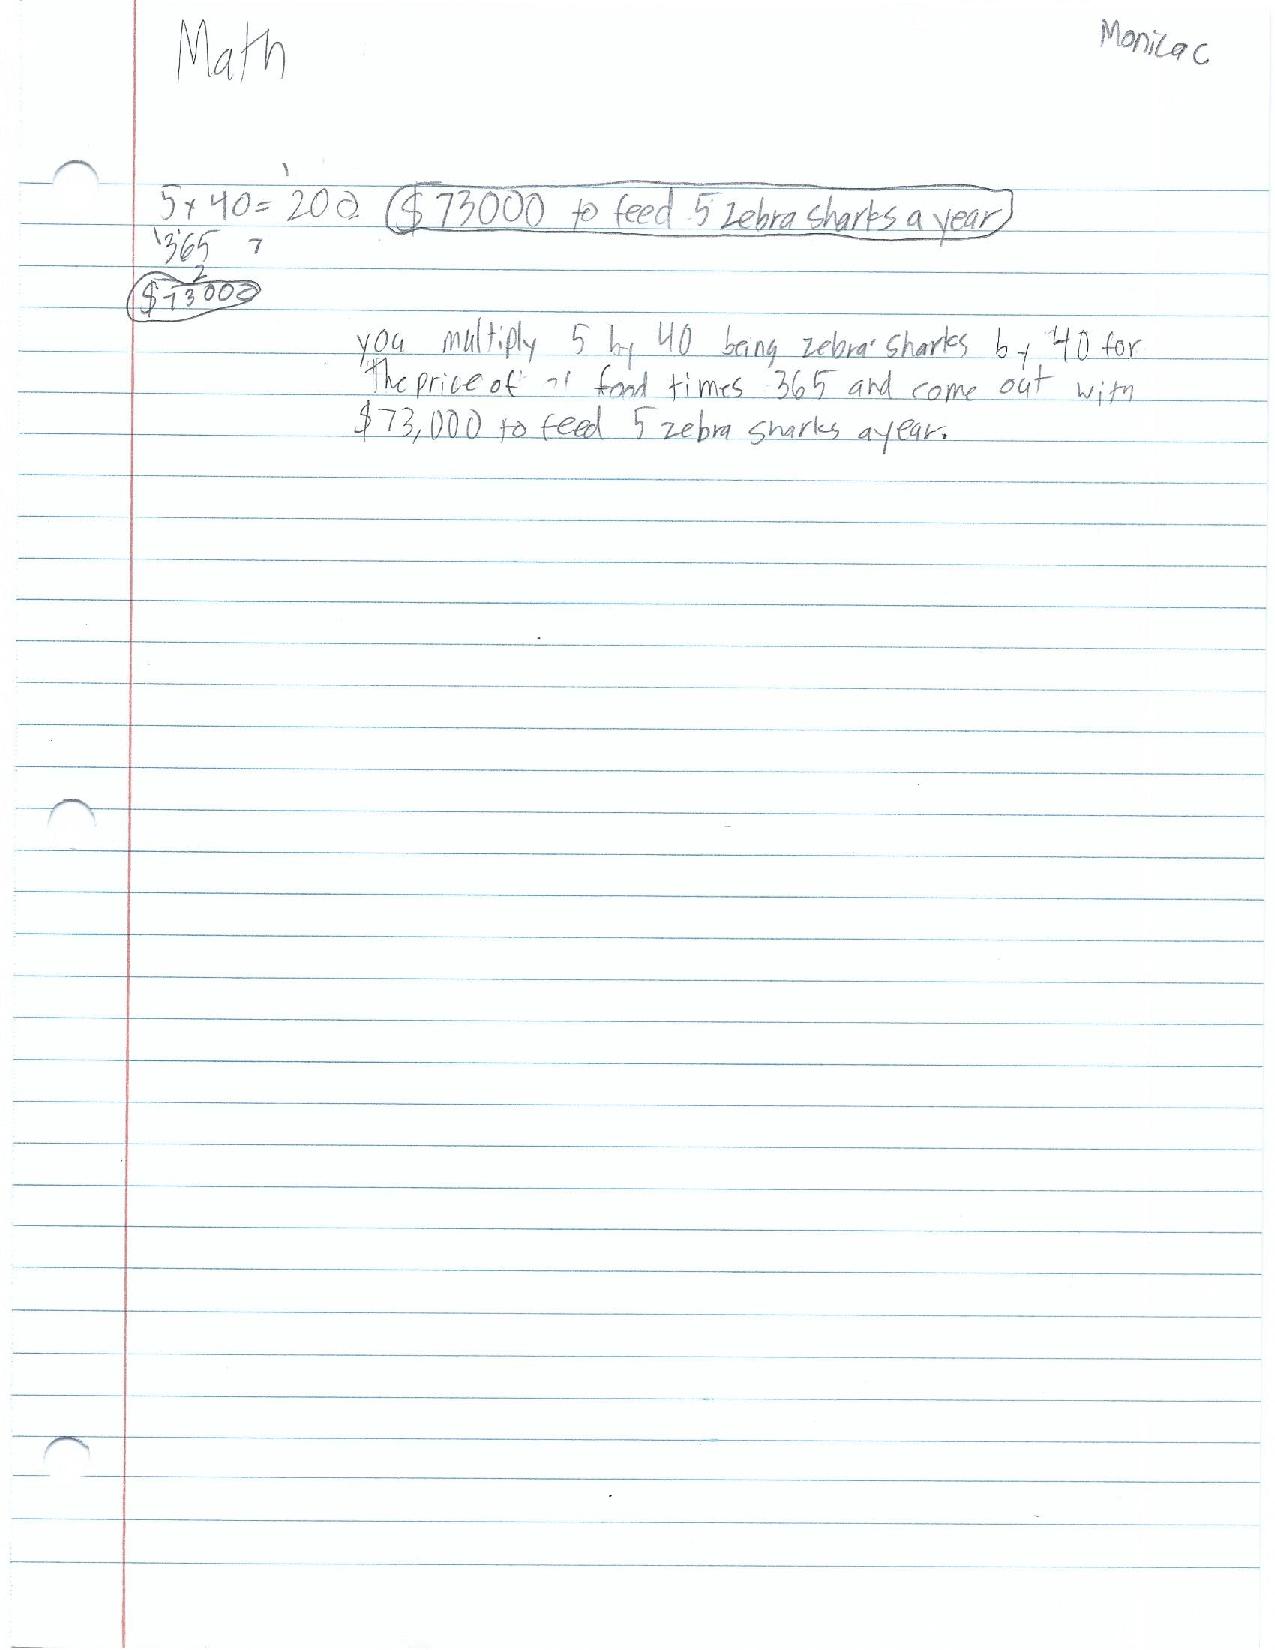 Math
Monica C
5 x 40 = 200 $73000 to feed 5 zebra sharks a year
365
2
$73000
you multiply 5 by 40 being zebra sharks by 40 for
The price of food times 365 and come out with
$73,000 to feed 5 zebra sharks a year.